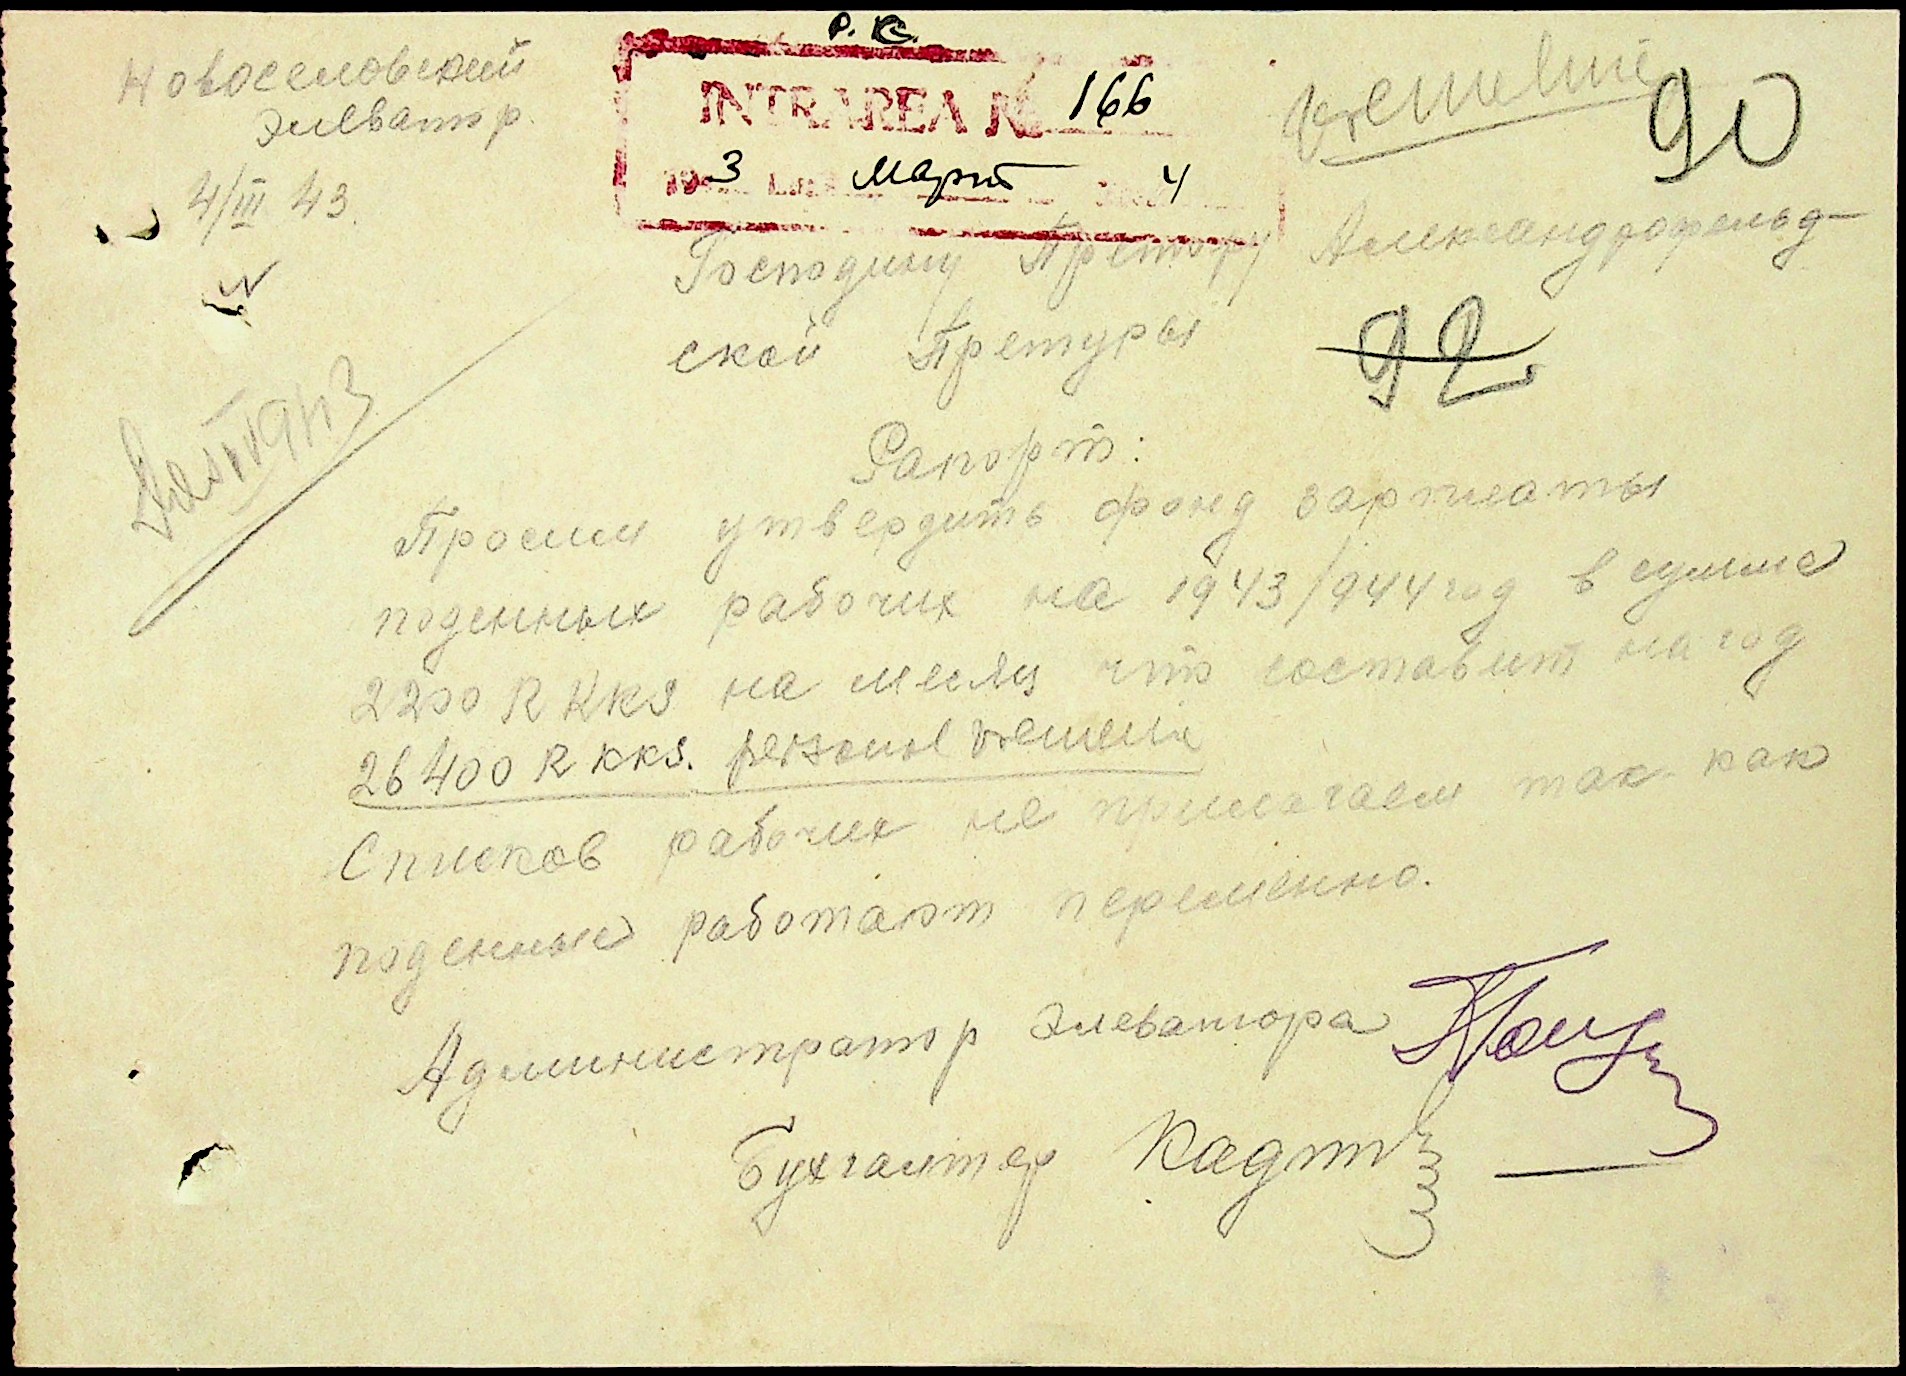 Р. К.
Новоселовский
Элеватор.
4/III 43.
INTRAREA No 166
1943 Март 4
vremelnic
90
Господину Претору Александрофельд-
ской Претуры
92
Рапорт:
Просим утвердить фонд зарплаты
поденных рабочих на 1943/944 год в сумме
2200 R KKS на месяц что составит на год
26400 R KKS. personal
Списков рабочих не прилагаем так как
поденные работают переменно.
Администратор Элеватора
Бухгалтер Кадт